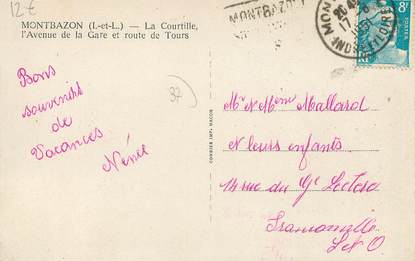 12 €
MONTBAZON (I.-et-L.) — La Courtille,
l'Avenue de la Gare et route de Tours
MONTBAZON
8F
RF
Bons
souvenirs
de
Vacances
Nénée
37
COMBIER IMP. MACON
Mr & Mme Mallard
& leurs enfants
14 rue du Gl Leclerc
Franconville
S & O